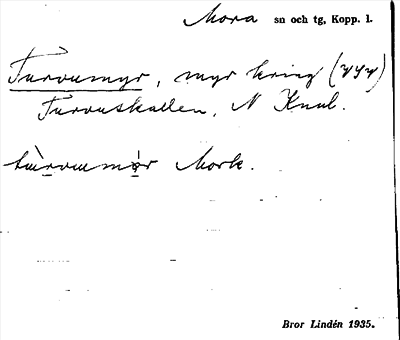 Mora sn och tg, Kopp. l.
Turvumyr, myr kring (VSV)
Turvuskallen, N Knul.
tùrvumýr Mork.
Bror Lindén 1935.